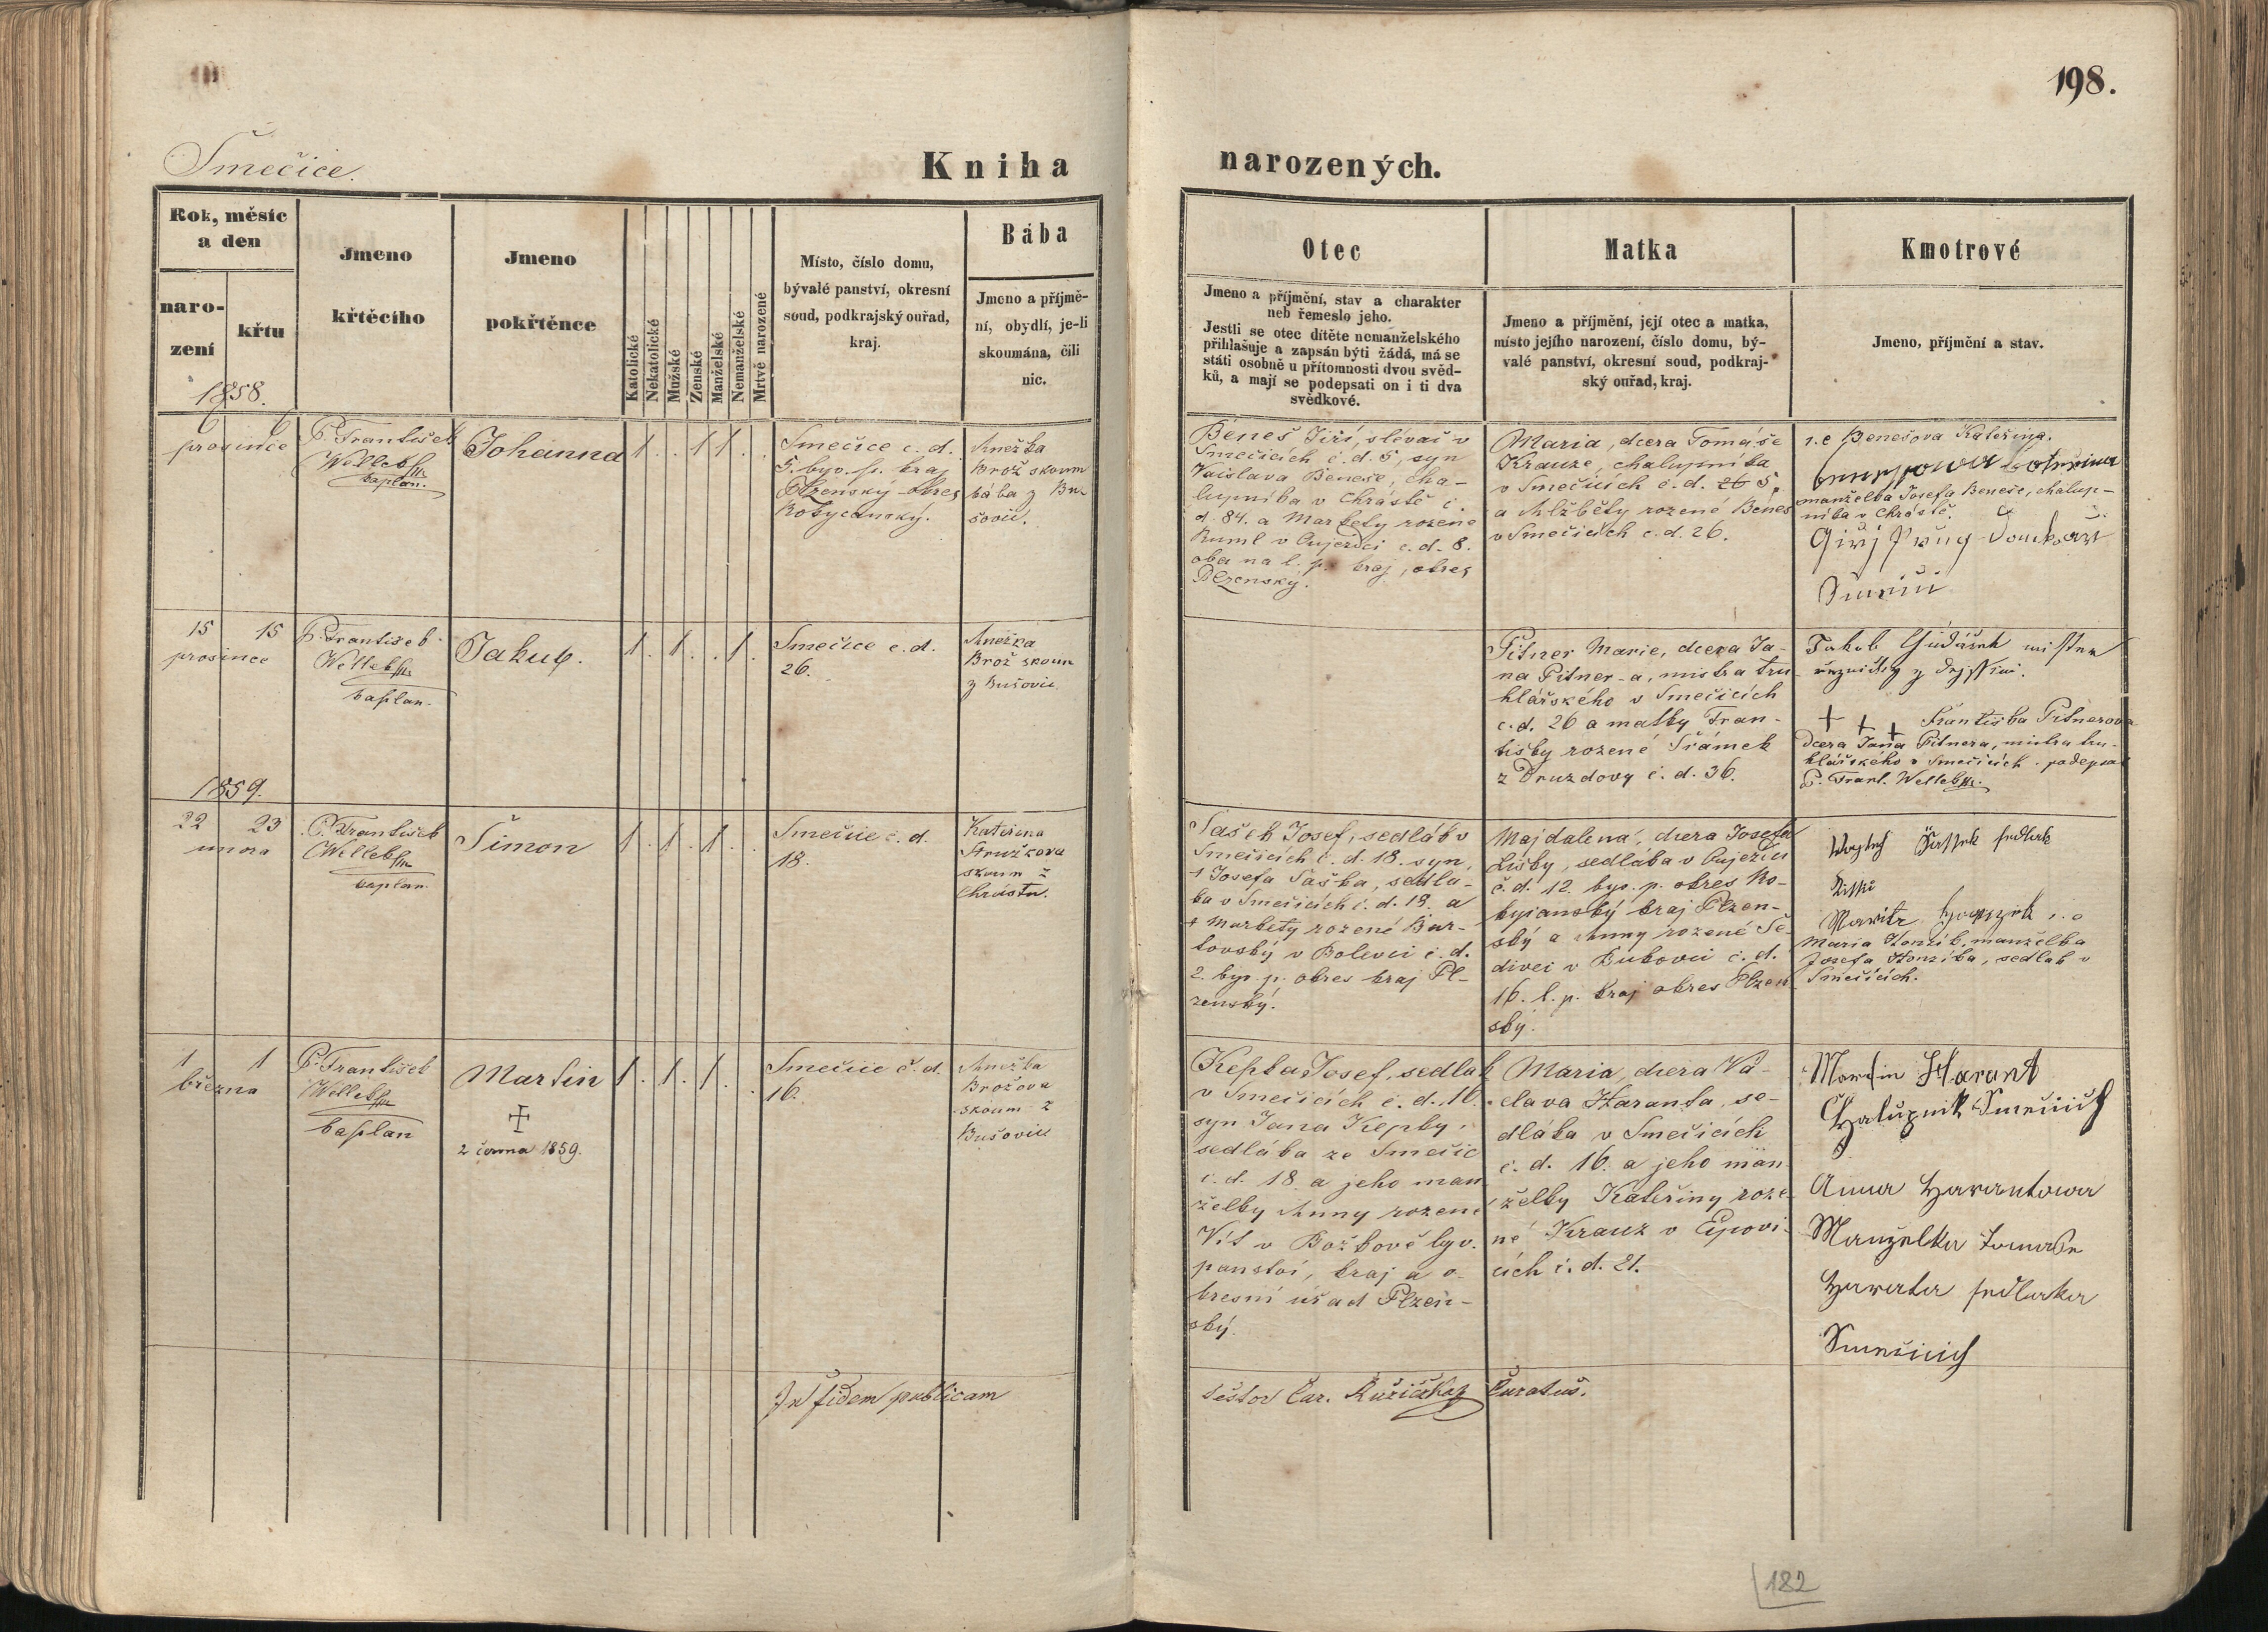 198.
Smečice.
Kniha
narozených.
Rok, měsíc
a den
naro-
zení
křtu
1858.
Jmeno
křtěcího
Jmeno
pokřtěnce
Katolické
Nekatolické
Mužské
Ženské
Manželské
Nemanželské
Mrtvě narozené
Místo, číslo domu,
bývalé panství, okresní
soud, podkrajský ouřad,
kraj.
Bába
Jmeno a příjmě-
ní, obydlí, je-li
skoumána, čili
nic.
Otec
Jmeno a příjmění, stav a charakter
neb řemeslo jeho.
Jestli se otec dítěte nemanželského
přihlašuje a zapsán býti žádá, má se
státi osobně u přítomnosti dvou svěd-
ků, a mají se podepsati on i ti dva
svědkové.
Matka
Jmeno a příjmění, její otec a matka,
místo jejího narození, číslo domu, bý-
valé panství, okresní soud, podkraj-
ský ouřad, kraj.
Kmotrové
Jmeno, příjmění a stav.
6 6
prosince
P. František
Welleb
kaplan.
Johanna
1 . . 1 1 . .
Smečice č. d.
5. byv. p. kraj
Plzenský okres
Rokycanský.
Anežka
Brož skoum
bába z Bu-
šovic.
Beneš Jiří, slévač v
Smečicích č. d. 5, syn
Václava Beneše, cha-
lupníka v Chrástě č.
d. 84. a Markety rozené
Kuml v Oujezdci č. d. 8.
oba na l. p. kraj, okres
Plzenský.
Maria, dcera Tomáše
Krauze, chalupníka
v Smečicích č. d. 26 5.
a Alžběty rozené Beneš
v Smečicích č. d. 26.
Benešova Kateřina.
manželka Josefa Beneše, chalup-
níka v Chrástě.
15 15
prosince
P. František
Welleb
kaplan.
Jakub.
1 . 1 . . 1 .
Smečice č. d.
26.
Anežka
Brož skoum
z Bušovic
Pitner Marie, dcera Ja-
na Pitner-a, mistra tru-
hlářského v Smečicích
č. d. 26 a matky Fran-
tišky rozené Šrámek
z Druzdovy č. d. 36.
Jakub
+ + + Františka Pitnerova
dcera Jana Pitnera, mistra tru-
hlářského v Smečicích. podepsal
P. Frant. Welleb
1859.
22 23
února
P. František
Welleb
kaplan.
Šimon
1 . 1 . 1 . .
Smečice č. d.
18.
Kateřina
Stružkova
skoum z
Chrástu.
Sašek Josef, sedlák v
Smečicích č. d. 18. syn
† Josefa Saška, sedlá-
ka v Smečicích č. d. 18. a
† Markety rozené Bar-
tovský v Bolevci č. d.
2. byv. p. okres kraj Pl-
zenský.
Majdalena, dcera Josefa
Lišky, sedláka v Oujezdu
č. d. 12. byv. p. okres Ro-
kycanský kraj Plzen-
ský a Anny rozené Še-
divci v Bukovci č. d.
16. l. p. kraj okres Plzen
ský.
Maria Honzik, manželka
Josefa Honzika, sedlak v
Smečicích.
1 1
března
P. František
Welleb
kaplan
Martin
2 června 1859.
1 . 1 . 1 . .
Smečice č. d.
16.
Anežka
Brožova
skoum z
Bušovic
Kepka Josef, sedlak
v Smečicích č. d. 16.
syn Jana Kepky,
sedláka ze Smečic
č. d. 18. a jeho man
želky Anny rozené
Vít v Božkově byv.
panství, kraj a o-
kresní úřad Plzen-
ský.
Maria, dcera Vá-
clava Haranta, se-
dláka v Smečicích
č. d. 16. a jeho man
želky Kateřiny roze-
né Krauz v Ejpovi-
cích č. d. 21.
Martin Harant
Chalupnik Smečicich
Anna Harantowa
Manželka Tomaše
Harata sedlaka
Smečicich
In fidem publicam
Nestor Car. Růžiczka Curatus.
182